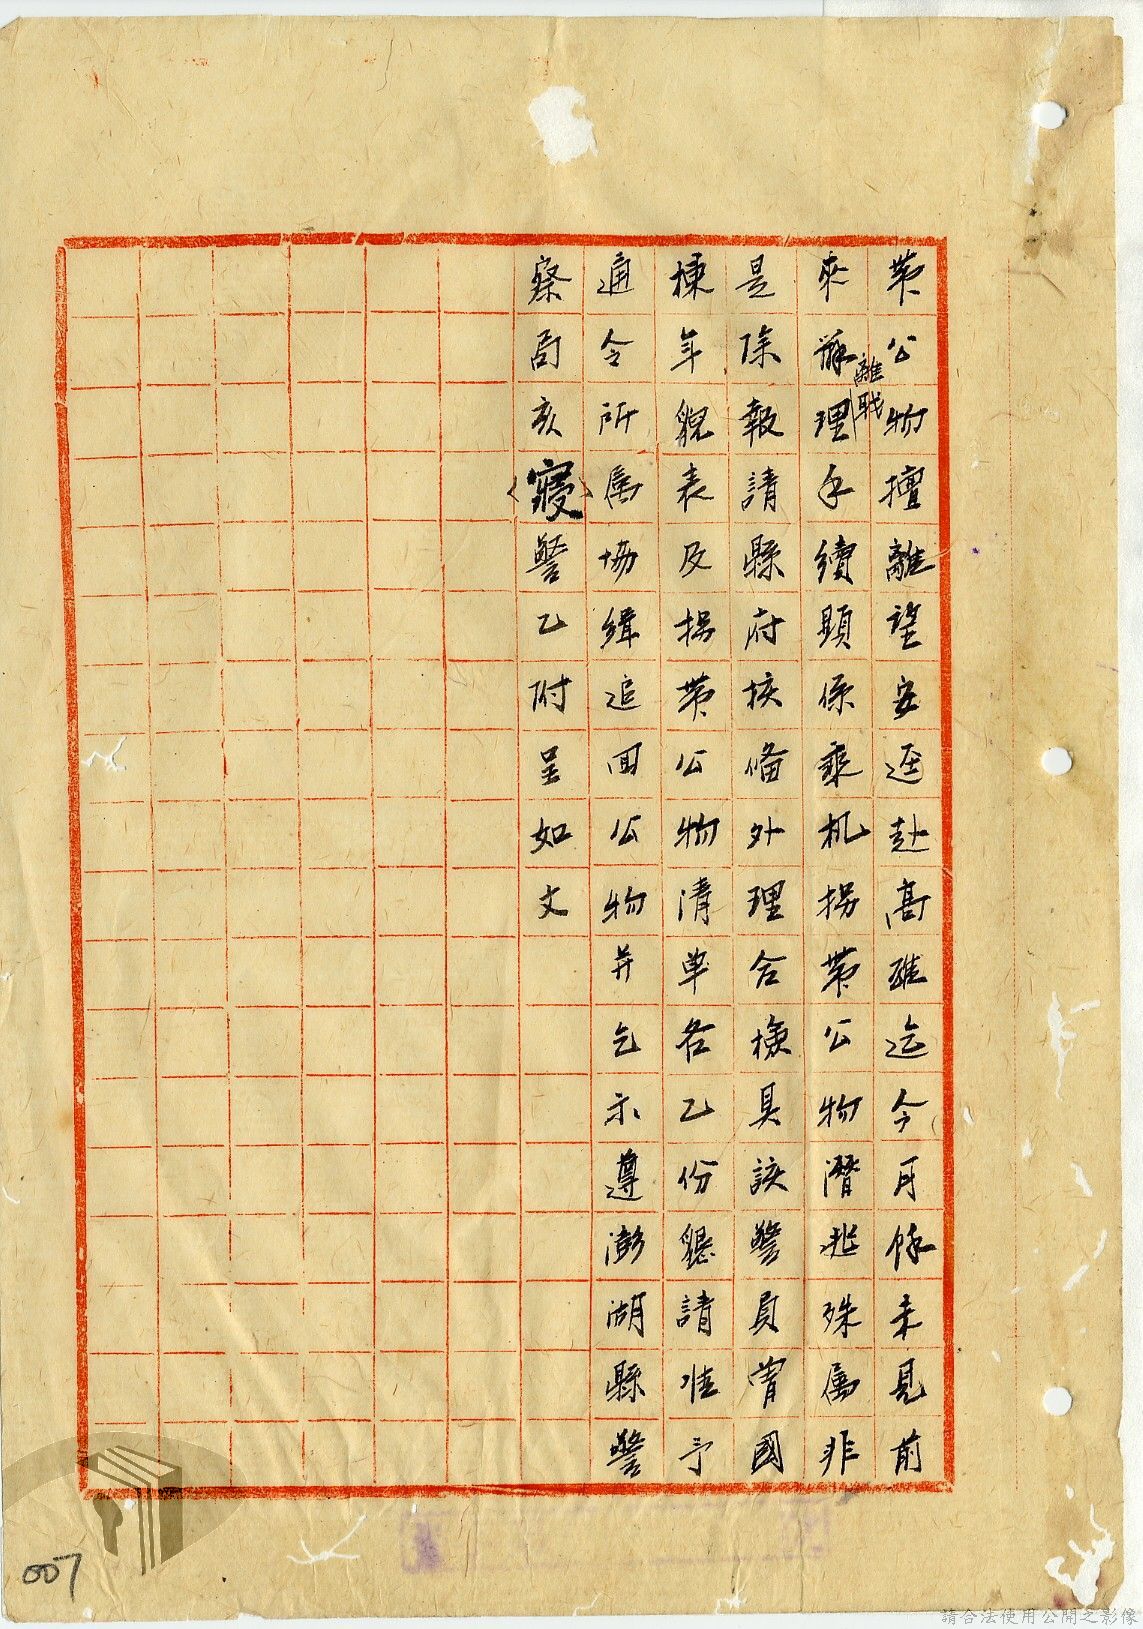 帶公物擅離望安逕赴高雄迄今月餘未見前
來辦理離職手續顯係乘机拐帶公物潛逃殊属非
是除報請縣府核俻外理合檢具該警員曾國
棟年貌表及拐帶公物清單各乙份懇請准予
通令所属協緝追回公物并乞示遵澎湖縣警
察局亥(寢)警乙附呈如文
007
請合法使用公開之影像